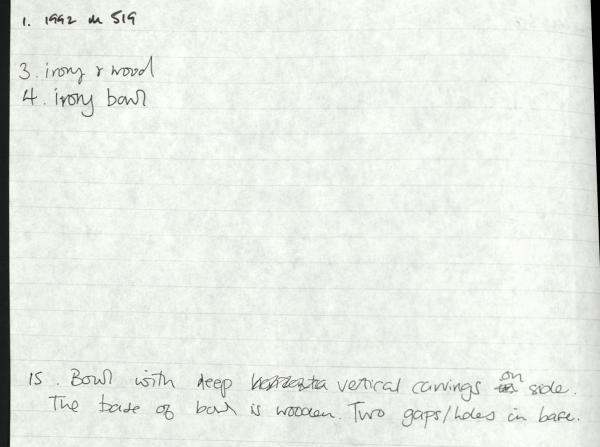 1. 1992 M 519
3. ivory & wood
4. ivory bowl
15. Bowl with deep vertical carvings on side.
The base of bowl is wooden. Two gaps/holes in base.